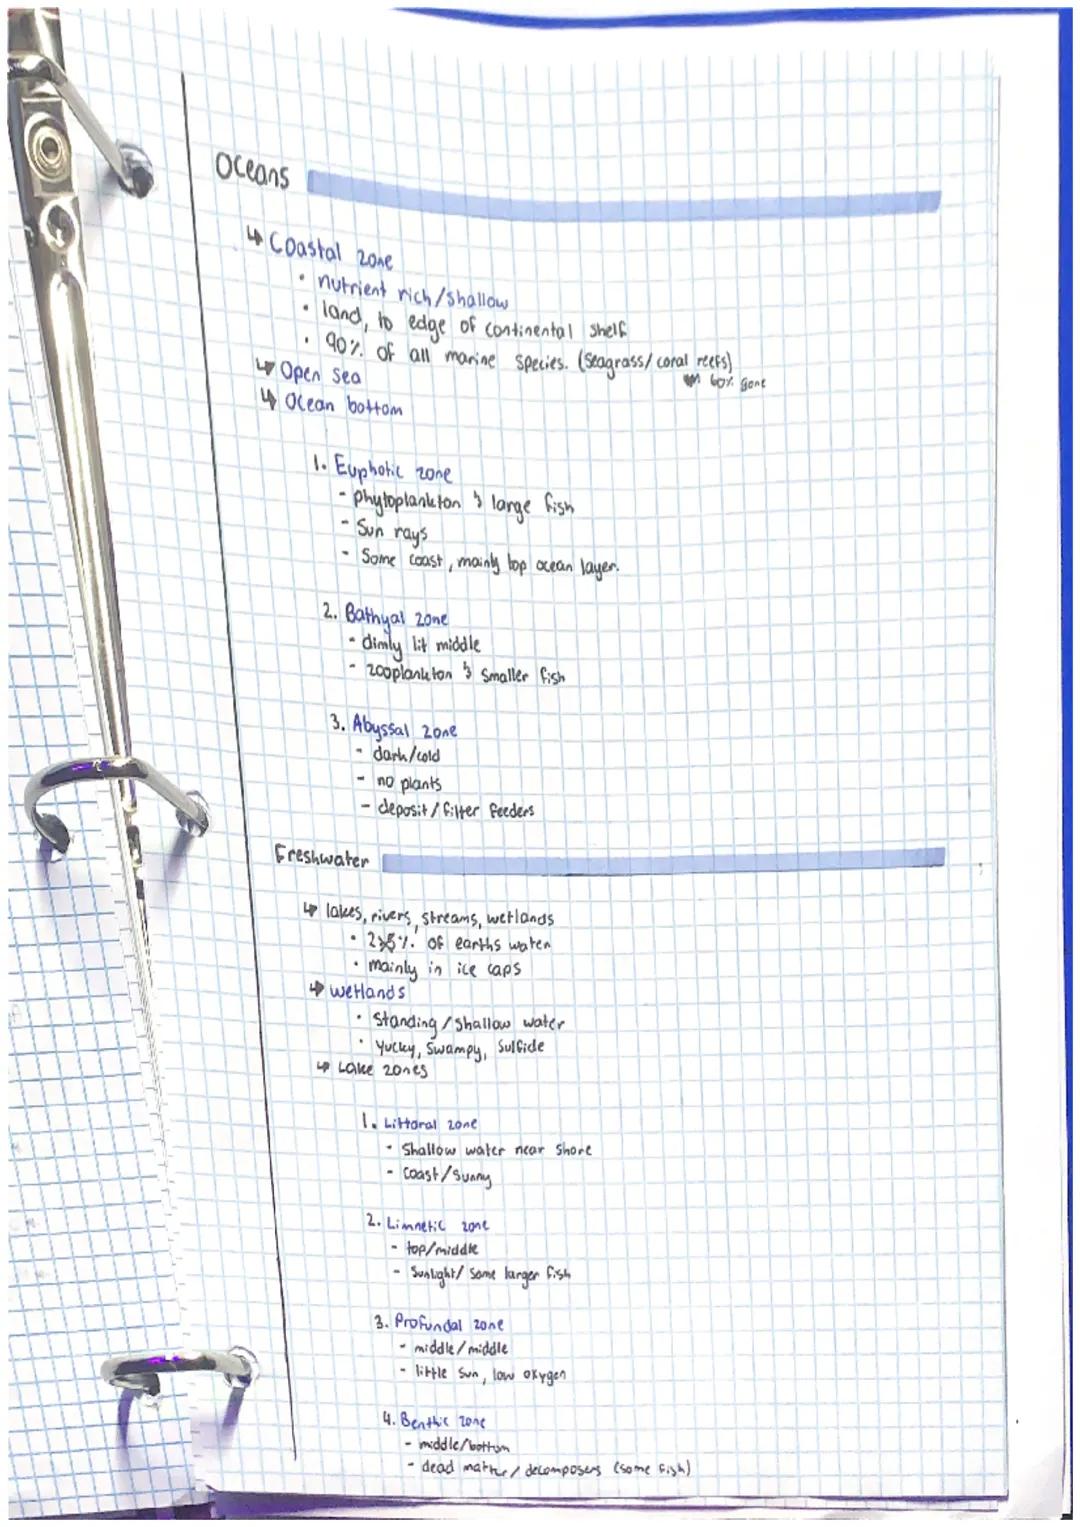 Oceans
↳ Coastal zone
• nutrient rich/shallow
• land, to edge of continental shelf
• 90% of all marine species. (Seagrass/coral reefs)
60% gone
↳ Open sea
↳ Ocean bottom
1. Euphotic zone
- phytoplankton & large fish
- Sun rays
- Some coast, mainly top ocean layer.
2. Bathyal zone
- dimly lit middle
- zooplankton & smaller fish
3. Abyssal zone
- dark/cold
- no plants
- deposit/filter feeders
Freshwater
↳ lakes, rivers, streams, wetlands
• % of earths water
• mainly in ice caps
↳ wetlands
• Standing/shallow water
• Yucky, Swampy, Sulfide
↳ Lake zones
1. Littoral zone
- Shallow water near shore
- Coast/Sunny
2. Limnetic zone
- top/middle
- Sunlight/some larger fish
3. Profundal zone
- middle/middle
- little sun, low oxygen
4. Benthic zone
- middle/bottom
- dead matter/decomposers (some fish)